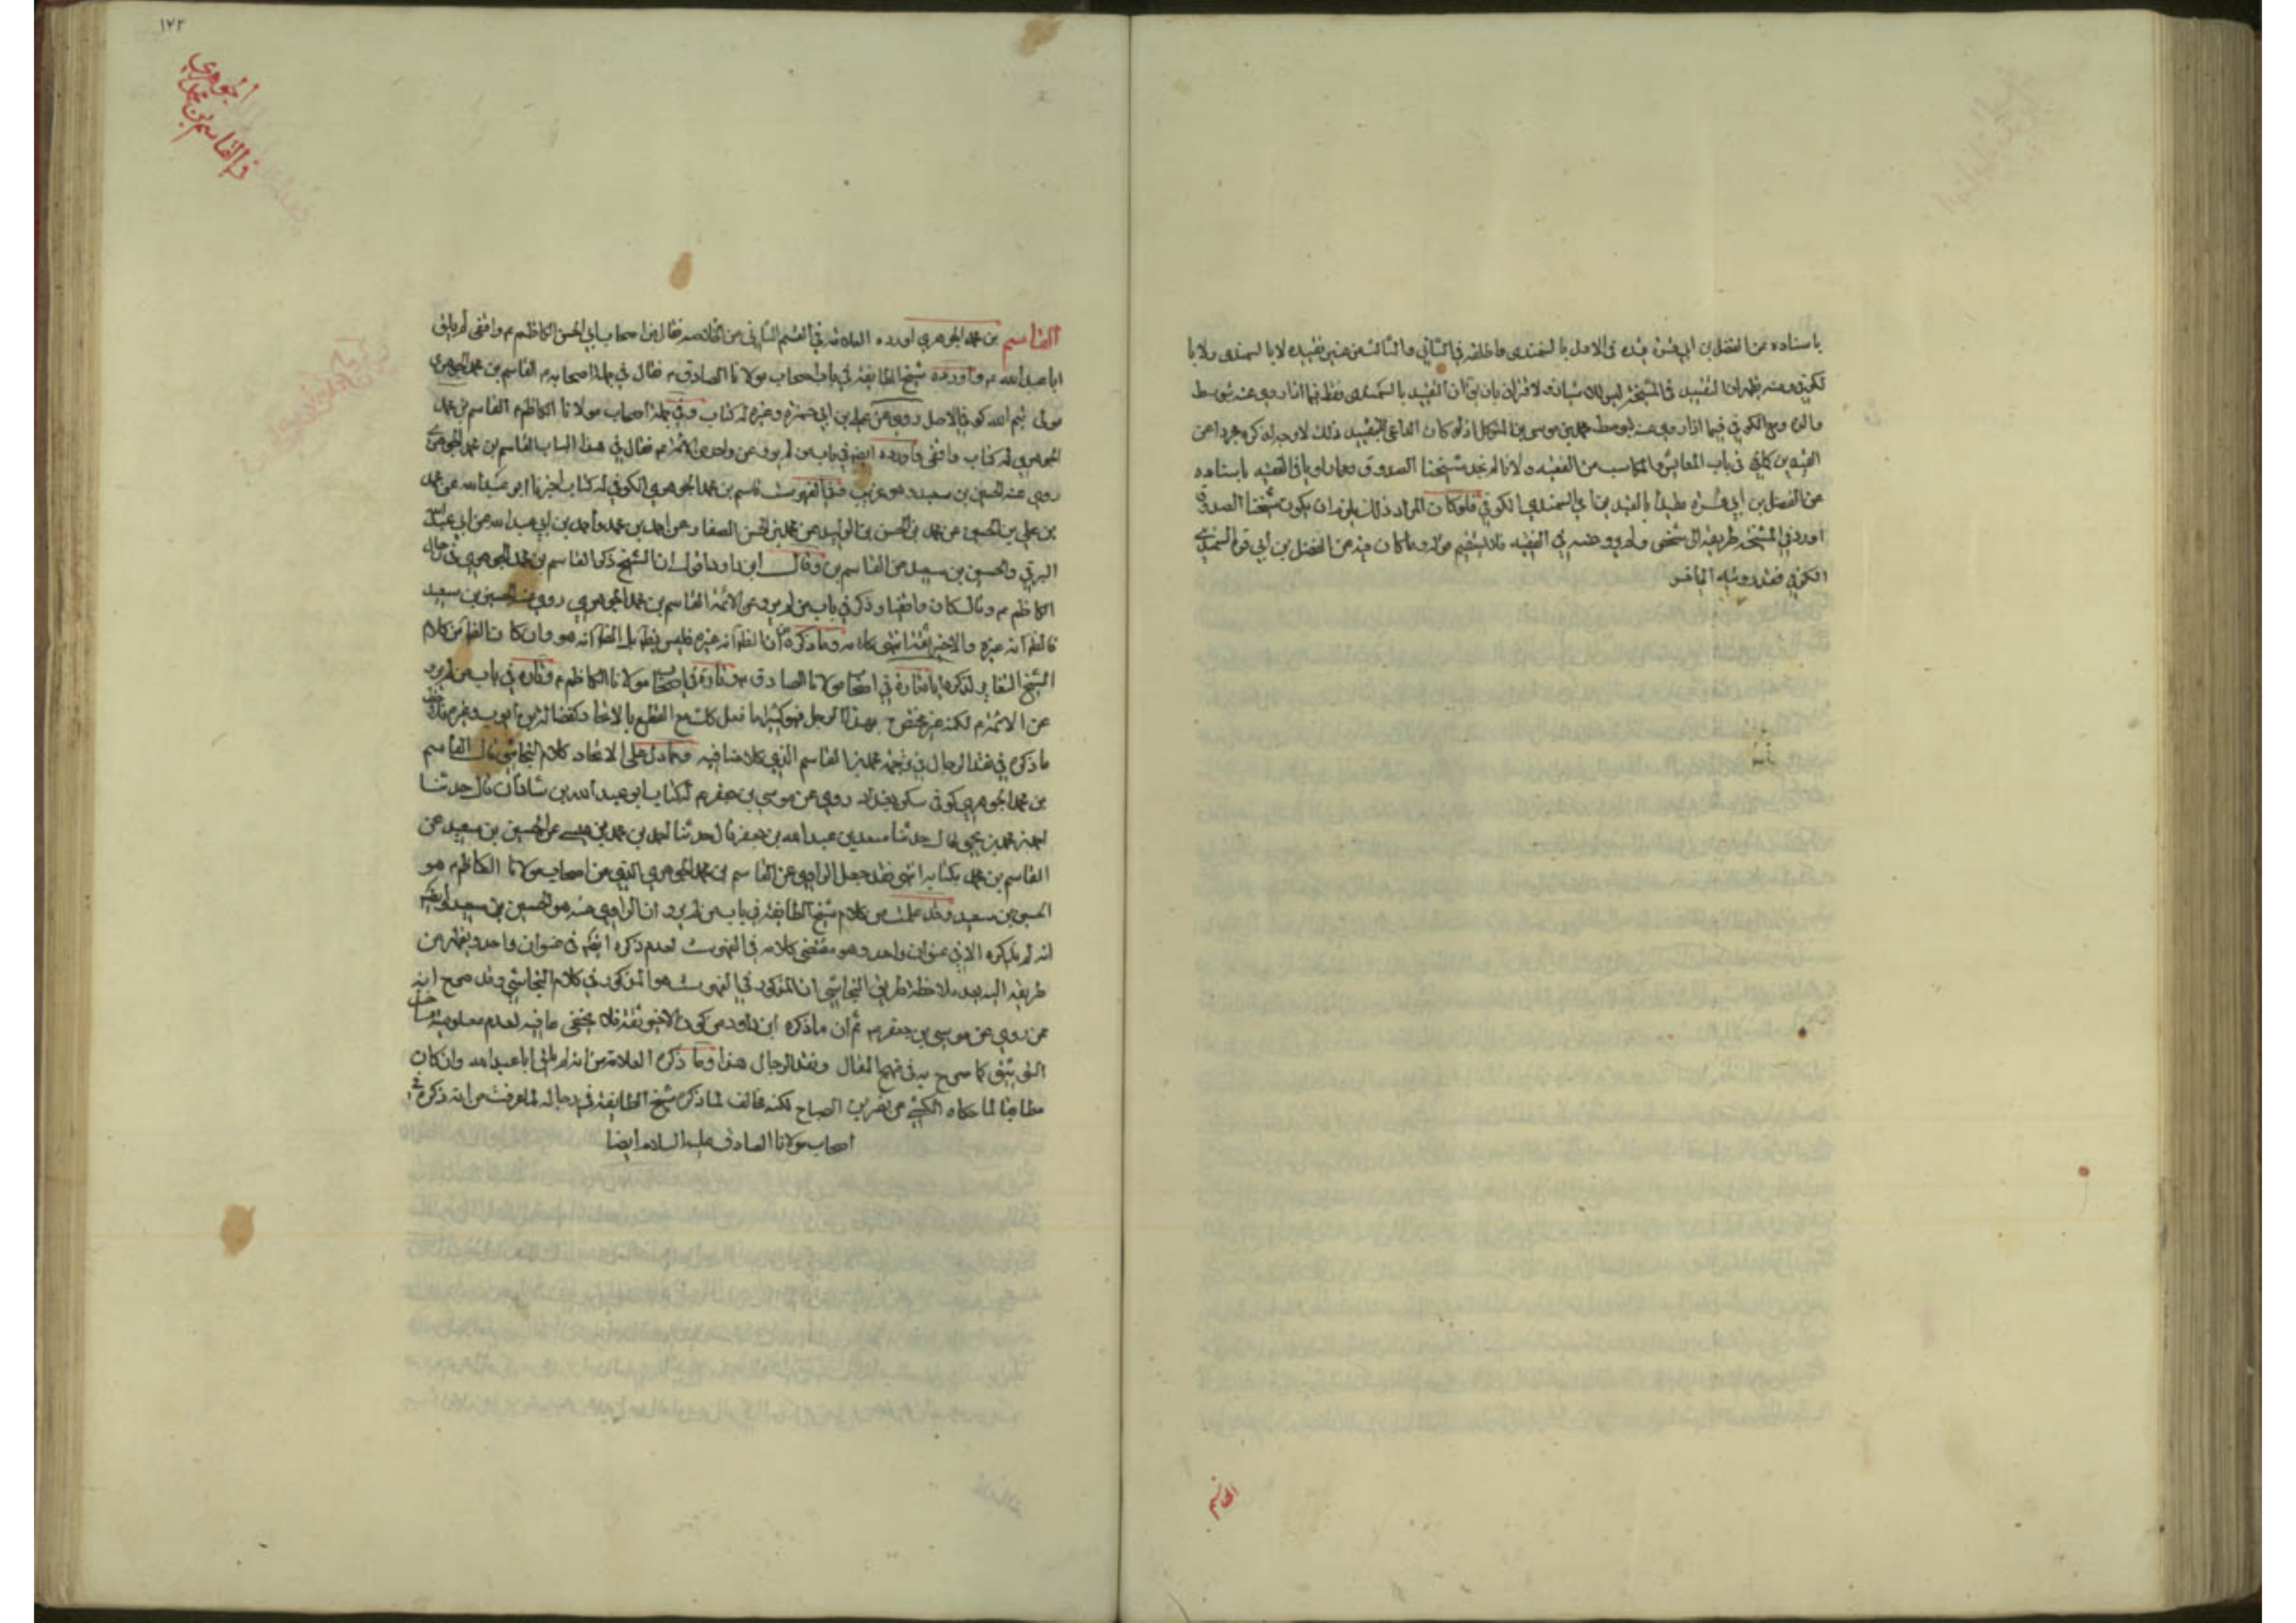 باسناده عن الفضل بن ابي قرة قيده في الاول بالسمندي واطلقه في الثاني والثالث من غير تقييده لا بالسمندي ولا با
لكوفي ومنه يظهر ان التقييد في المشيخة ليس
والده ومع الكوفي فيما اذا روى عنه بتوسط محمد بن موسى بن المتوكل اذ لو كان الداعي للتقييد ذلك لاوجه لذكره مجردا عن
القيدين كليهما في باب المعايش والمكاسب من الفقيه ولانا لم نجد شيخنا الصدوق في الفقيه باسناده
عن الفضل بن ابي قرة مقيدا بالقيدين اي السمندي الكوفي فلو كان المراد ذلك يلزم ان يكون شيخنا الصدوق
اورد في المشيخة طريقه الى شخص ولم يرو عنه في الفقيه عن الفضل بن ابي قرة السمندي
الكوفي فقد رويته
القاسم
١٢٣
في القاسم بن محمد
الجوهري
القاسم بن محمد الجوهري اورده العلامة في القسم الثاني من الخلاصة فقال من اصحاب ابي الحسن الكاظم م واقفي لم يلق
ابا عبد الله م واورده شيخ الطائفة في باب اصحاب مولانا الصادق م فقال في جملة اصحابه م القاسم بن محمد الجوهري
مولى تيم الله كوفي الاصل روى عن علي بن ابي حمزة وغيره له كتاب وفي جملة اصحاب مولانا الكاظم م القاسم بن محمد
الجوهري له كتاب واقفي واورده ايضا في باب من لم يرو عن واحد من الائمة م فقال في هذا الباب القاسم بن محمد الجوهري
روى عنه الحسين بن سعيد وفي الفهرست قاسم بن محمد الجوهري الكوفي له كتاب اخبرنا ابو عبد الله عن محمد
بن علي بن الحسين عن محمد بن الحسن بن الوليد عن محمد بن الحسن الصفار عن احمد بن محمد واحمد بن ابي عبد الله عن ابي عبد الله
البرقي والحسين بن سعيد عن القاسم بن وقال ابن داود اقول ان الشيخ ذكر القاسم بن محمد الجوهري في رجال
الكاظم م وقال كان واقفيا وذكر في باب من لم يرو عن الائمة القاسم بن محمد الجوهري روى عنه الحسين بن سعيد
فالظ انه غيره والاخير ثقة انتهى كلامه وما ذكره من ان الظ انه غيره فليس بظ بل الظ انه هو وان كان الظ من كلام
الشيخ التغاير لذكره اياه تارة في اصحاب مولانا الصادق م وتارة في اصحاب مولانا الكاظم م وتارة في باب من لم يرو
عن الائمة م لكنه غير مختص بهذا الرجل فهو كثيرا ما فعل كك مع القطع بالاتحاد كفضالة بن ايوب وغيره
ما ذكره في نقد الرجال في ترجمة محمد بن القاسم الذي كلامنا فيه ومما دل على الاتحاد كلام النجاشي قال القاسم
بن محمد الجوهري كوفي سكن بغداد روى عن موسى بن جعفر م له كتاب ابو عبد الله بن شاذان قال حدثنا
احمد بن محمد بن يحيى قال حدثنا سعد بن عبد الله بن جعفر قال حدثنا احمد بن محمد بن عيسى عن الحسين بن سعيد عن
القاسم بن محمد بكتابه انتهى فقد جعل الراوي عن القاسم بن محمد الجوهري الذي من اصحاب مولانا الكاظم م هو
الحسين بن سعيد وقد علمت من كلام شيخ الطائفة في باب من لم يرو ان الراوي عنه هو الحسين بن سعيد
انه لم يذكره الا في عنوان واحد وهو مقتضى كلامه في الفهرست لعدم ذكره ايضا في عنوان واحد ويظهر من
طريقه اليه بعد ملاحظة طريق النجاشي ان المذكور في الفهرست هو المذكور في كلام النجاشي وقد صرح انه
ممن روى عن موسى بن جعفر م ثم ان ما ذكره ابن داود من كون الاخير ثقة فلا يخفى ما فيه لعدم معلومية
التوثيق كما صرح به في منهج المقال ونقد الرجال هذا وما ذكره العلامة من انه لم يلق ابا عبد الله وان كان
مطابقا لما حكاه الكشي عن نصر بن الصباح لكنه مخالف لما ذكره شيخ الطائفة في رجاله لما عرفت من انه ذكره في
اصحاب مولانا الصادق عليه السلام ايضا